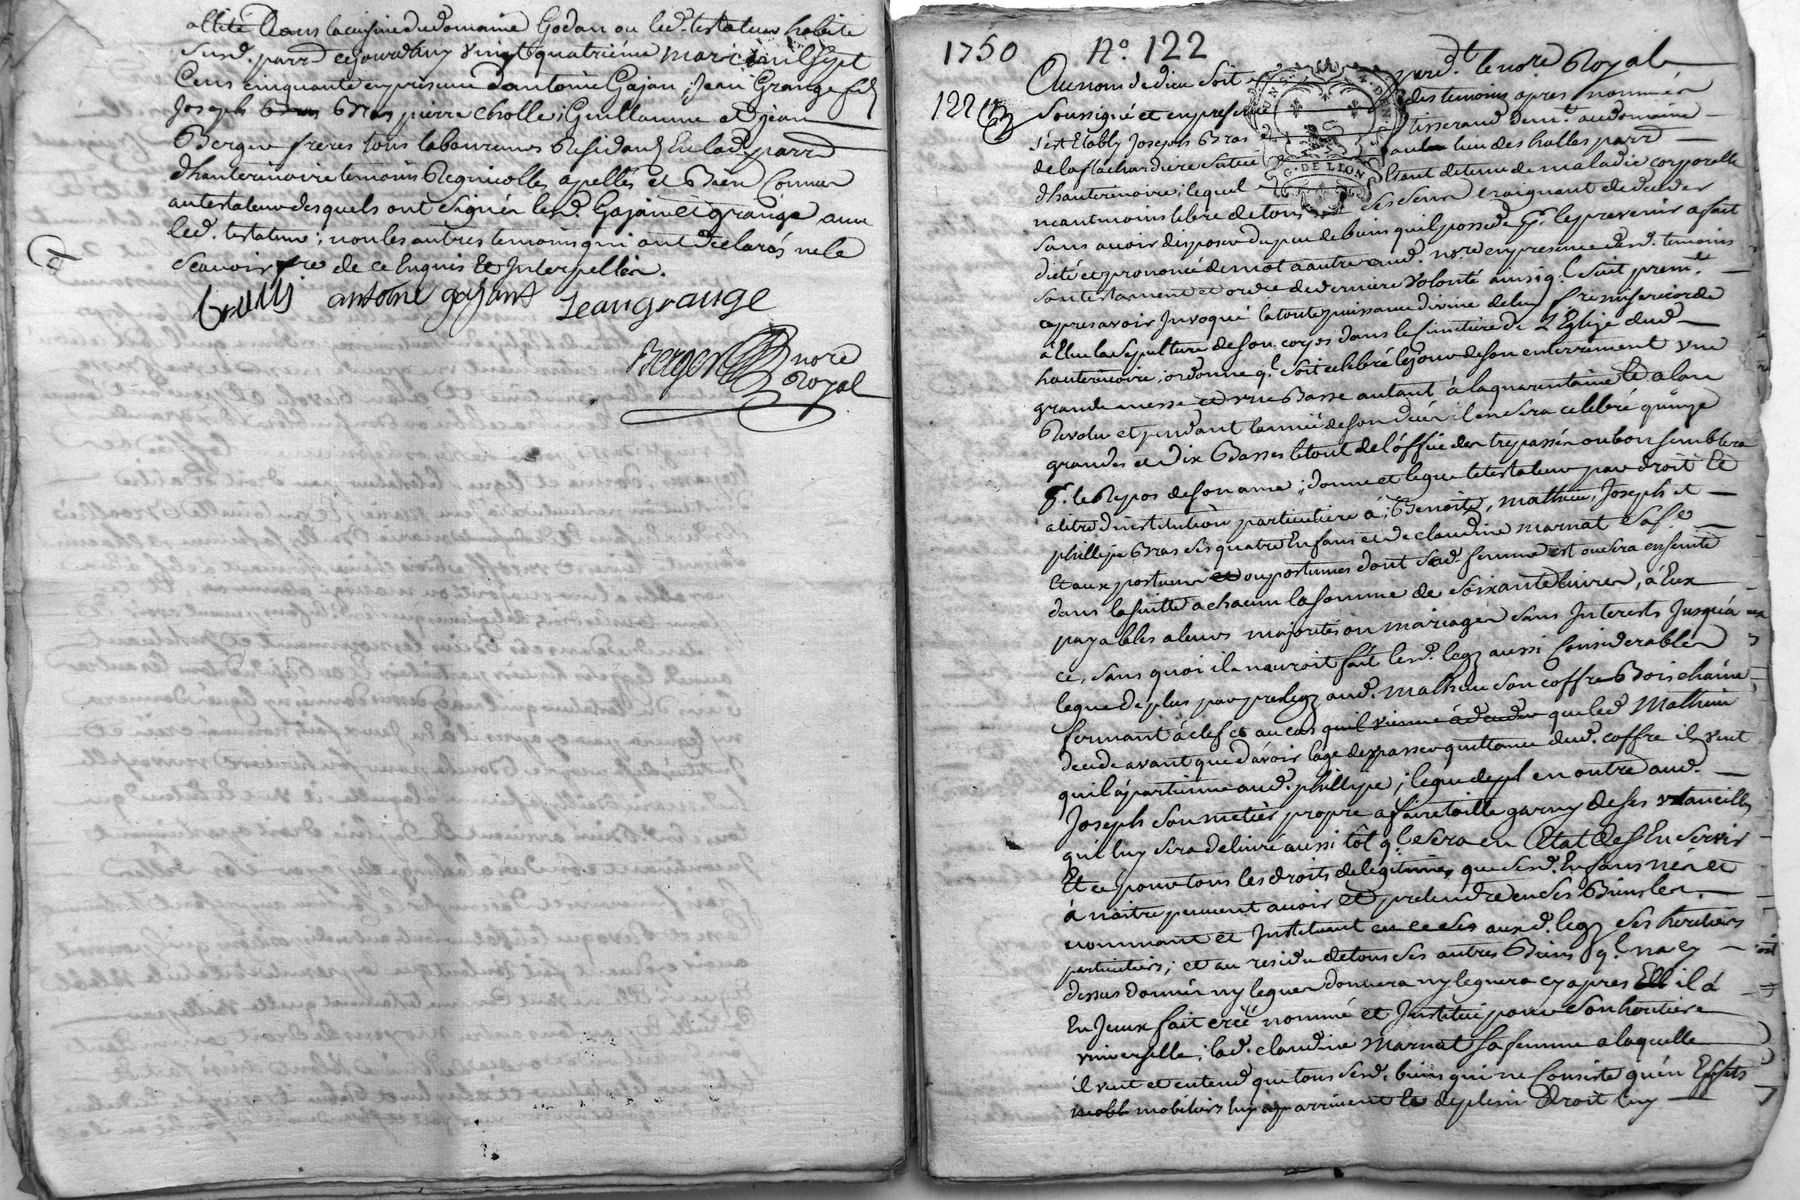 allité dans la cuisine du domaine Godan ou led. testateur habite
susd. parr. cejourd'huy vingt quatrieme mars mil sept
Cens cinquante en presence d'antoine Gajan, Jean Grange fils
Joseph Bras pierre cholle, Guillaume et jean
Bergue freres tous laboureurs Residants en lad. parr.
d'hauterivoire temoins Regnicolles apellés et Bien Connus
au testateur desquels ont signés lesd. Gajan et grange avec
led. testateur; non les autres temoins qui ont declarés ne le
scavoir fre de ce Enquis Et Interpellés.
antoine gajant Jean grange
Berger nore
Royal
1750 No. 122
122
Au nom de dieu soit pard.t le nore Royal
soussigné et en presence des temoins apres nommés
s'est Etably Joseph Bras tisserand dem.t au domaine
de la flachardiere située au lieu des halles parr.
d'hauterivoire, lequel Etant detenu de maladie corporelle
neantmoins libre de tous ses sens craignant de deceder
sans avoir disposer du peu de biens qu'il possede pr. le prevenir a fait
dicté et prononcé de mot a autre aud. nore en presence desd. temoins
son testament et ordre de derniere volonté ainsi q.l suit prem.t
apres avoir Invoqué la toute puissance divine de luy fre misericorde
à Elue la sepulture de son corps dans le simetiere de L'Eglise dud.
hauterivoire, ordonne q.l soit celebré le jour de son enterrement une
grande messe et une Basse autant à la quarantaine et a l'an
Revolu et pendant l'année de son deces il en sera celebré quinze
grandes et dix Basses le tout de l'office des trepassés ou bon semblera
pr. le Repos de son ame; donne et legue le testateur par droit et
a titre d'institution particuliere à Benoite, mathieu, Joseph et
phillipe Bras ses quatre Enfans et de claudine marnat sa fe
Et aux postume ou postumes dont sad. femme est ou sera enseinte
dans la suitte a chacun la somme de soixante livres, à Eux
payables a leurs majorités ou mariages sans Interests Jusqu'a
ce, sans quoi il n'auroit fait lesd. legs aussi Considerables
legue de plus par prelegs aud. mathieu son coffre Bois chaine
fermant à clef et au cas qu'il vienne à deceder que led. Mathieu
decede avant que d'avoir l'age de passer quittance dud. coffre il veut
qu'il apartienne aud. phillipe; legue de pl. en outre aud.
Joseph son metier propre a faire toille garny de ses utancilles
qui luy sera delivré aussi tôt q.l sera en Etat de s'En servir
Et ce pour tous les droits de legitimes que sesd. Enfans nés et
à naitre peuvent avoir et pretendre en ses Biens les
nommant et Instituant en ce ses aux d. legs ses heritiers
particuliers; et au residu de tous ses autres Biens q.l n'a cy
dessus donnés ny legués donnera ny leguera cy apres Ell il à
En Iceux fait créé nommé et Institué pour son heritiere
universelle, lad. claudine Marnat sa femme a laquelle
il veut et entend que tous sesd. biens qui ne Consiste qu'en Effets
mobl mobiliers luy aparviennent et de plein droit luy